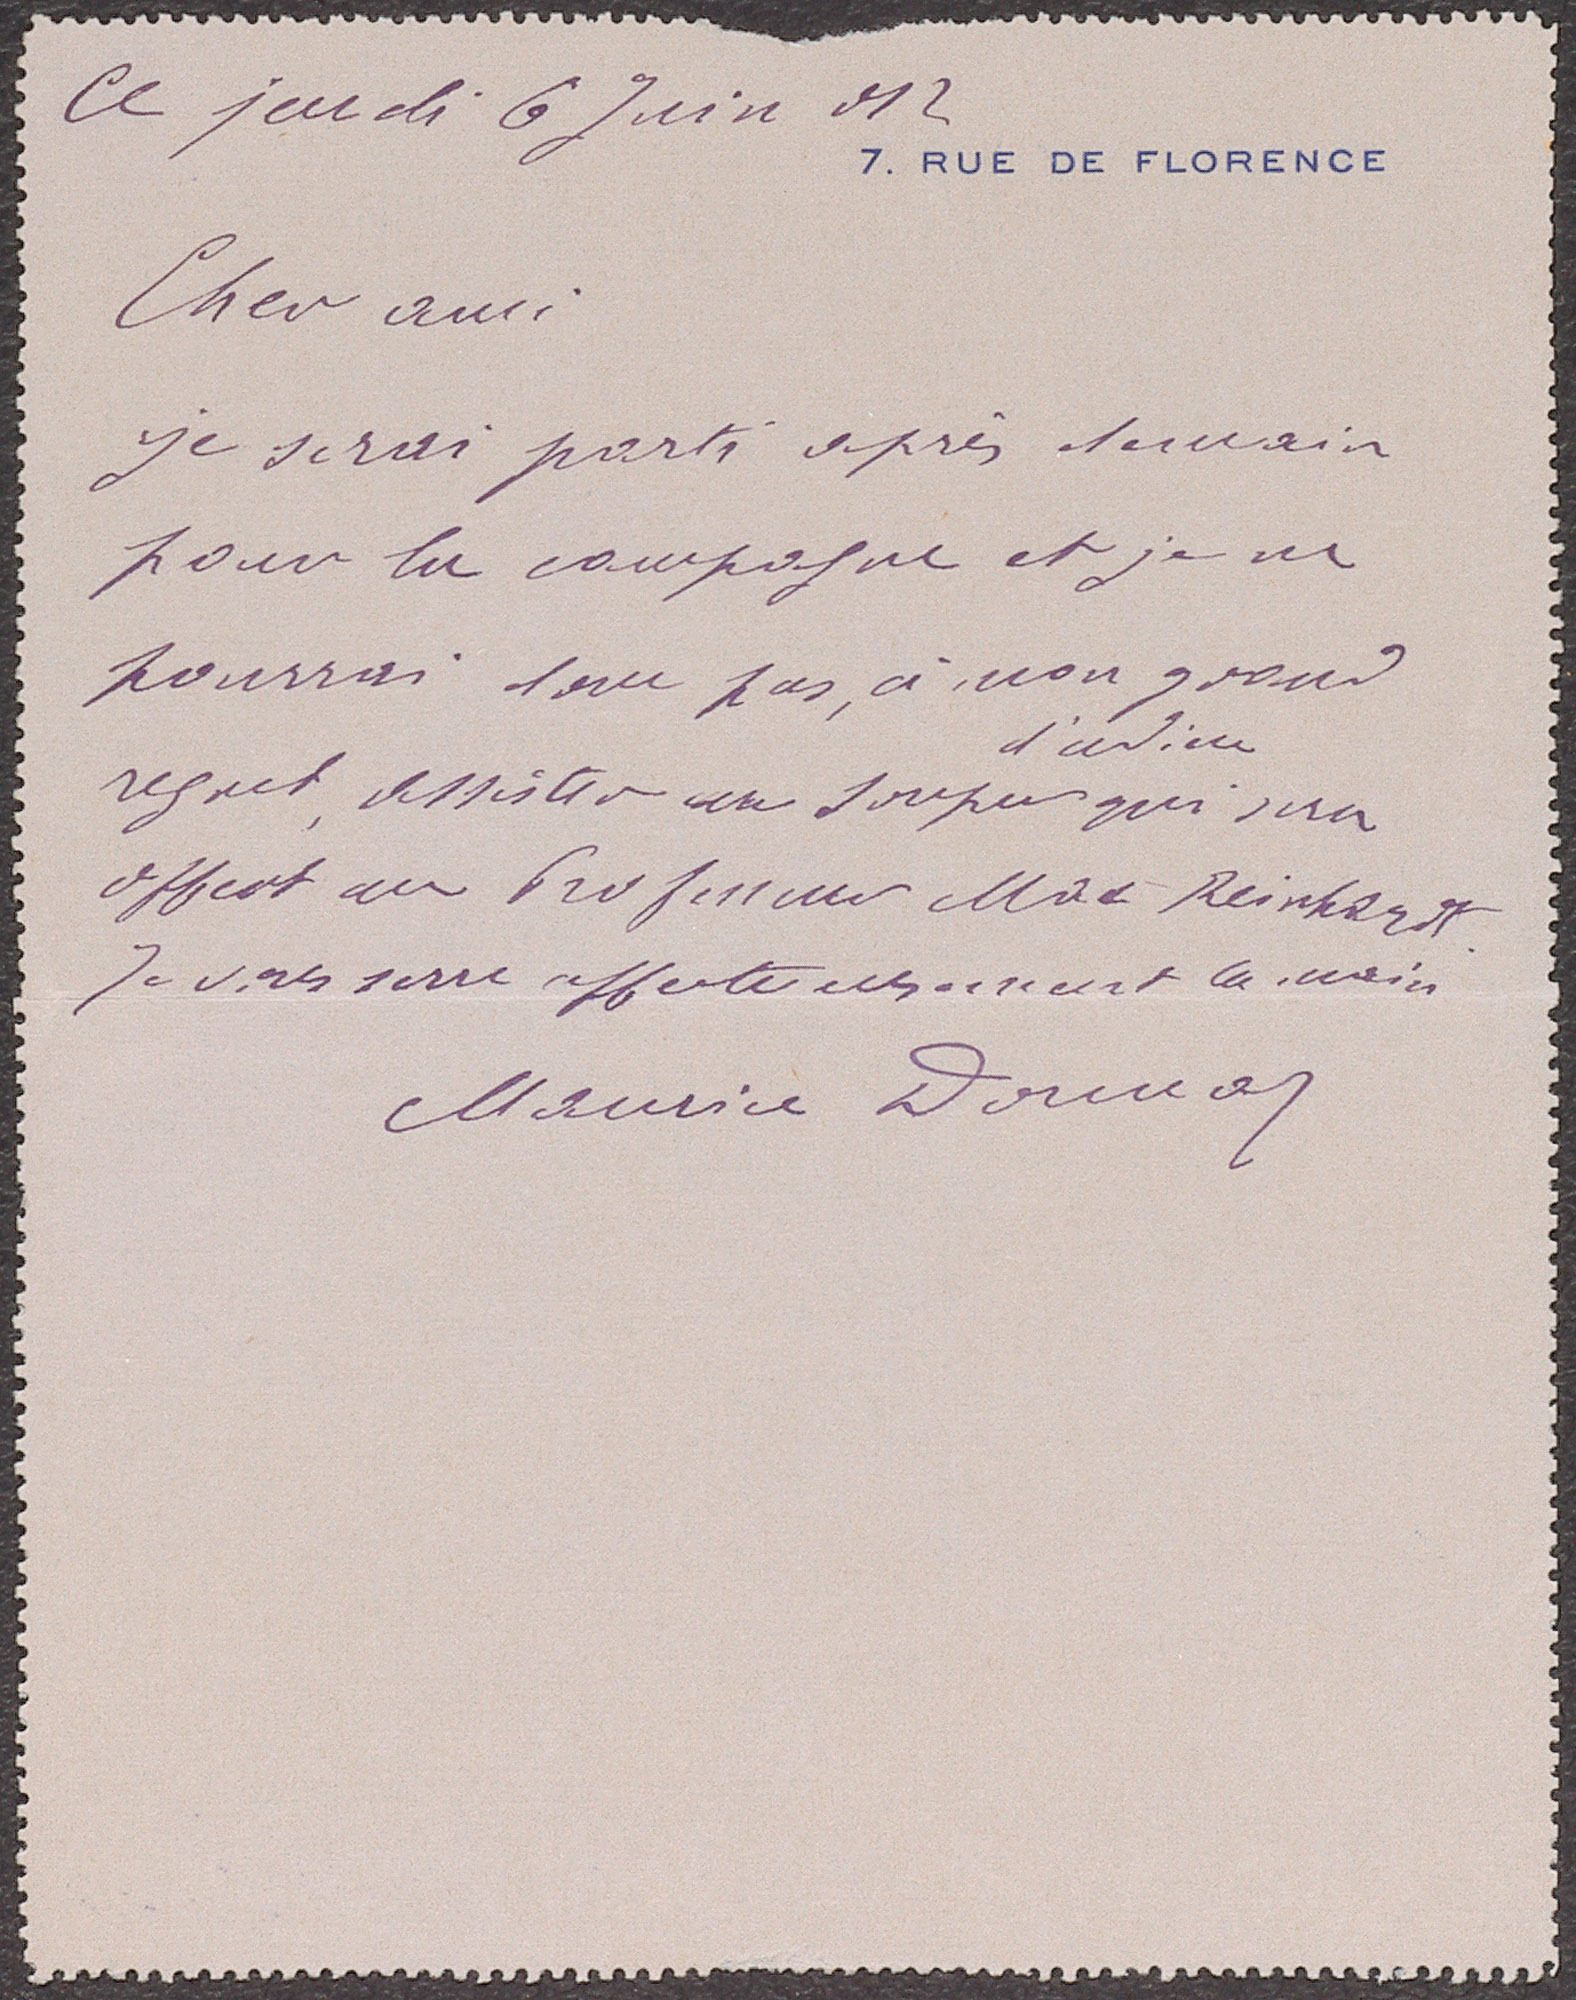 Ce jeudi 6 Juin 912
7. RUE DE FLORENCE
Cher ami
je serai parti après demain
pour la campagne et je ne
pourrai donc pas, à mon grand
regret, assister au souper d'adieu qui sera
offert au Professeur Max Reinhardt.
Je vous serre affectueusement la main
Maurice Donnay